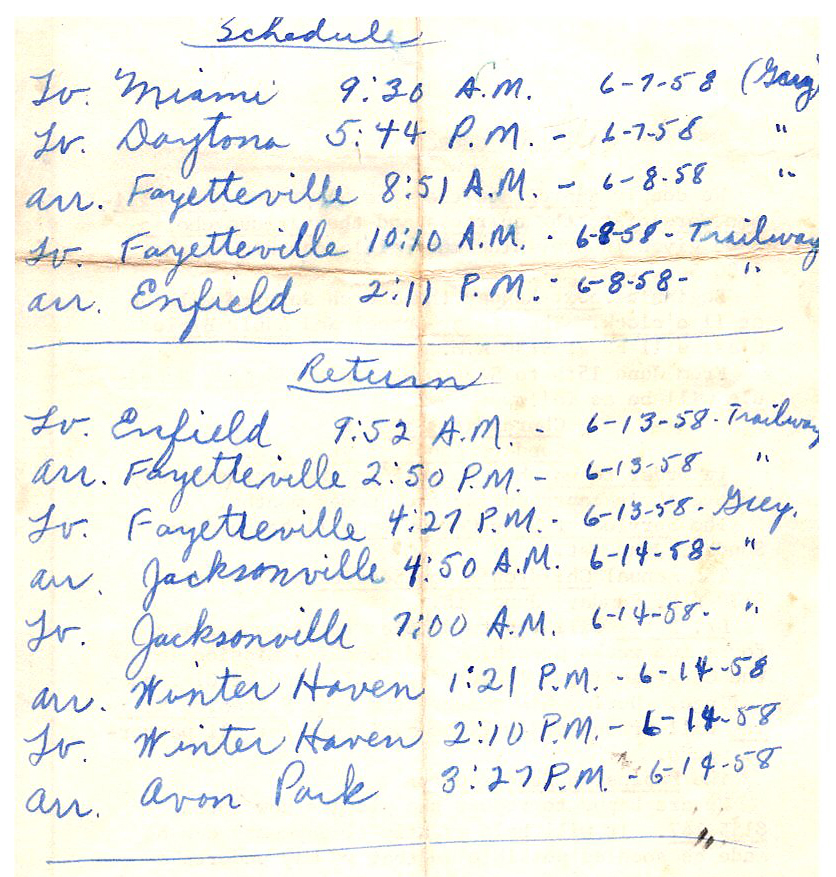 Schedule
Lv. Miami 9:30 A.M. 6-7-58 (Grey)
Lv. Daytona 5:44 P.M. - 6-7-58 "
arr. Fayetteville 8:51 A.M. - 6-8-58 "
Lv. Fayetteville 10:10 A.M. - 6-8-58 - Trailway
arr. Enfield 2:11 P.M. - 6-8-58 - "
Return
Lv. Enfield 9:52 A.M. - 6-13-58 - Trailway
arr. Fayetteville 2:50 P.M. - 6-13-58 "
Lv. Fayetteville 4:27 P.M. - 6-13-58 - Grey.
arr. Jacksonville 4:50 A.M. 6-14-58 - "
Lv. Jacksonville 7:00 A.M. 6-14-58 - "
arr. Winter Haven 1:21 P.M. - 6-14-58
Lv. Winter Haven 2:10 P.M. - 6-14-58
arr. Avon Park 3:27 P.M. - 6-14-58